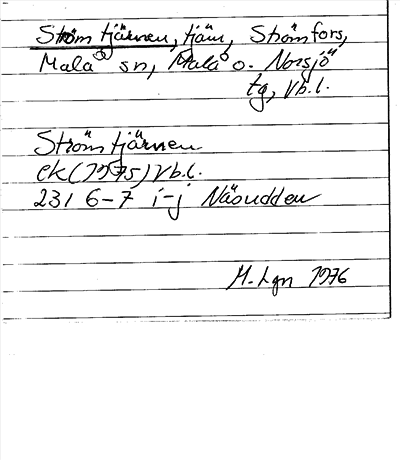 Strömtjärnen, tjärn, Strömfors,
Malå sn, Malå o. Norsjö
tg, Vb.l.
Strömtjärnen
ek (1975) Vb.l.
231 6-7 i-j Näsudden
M. Lgn 1976